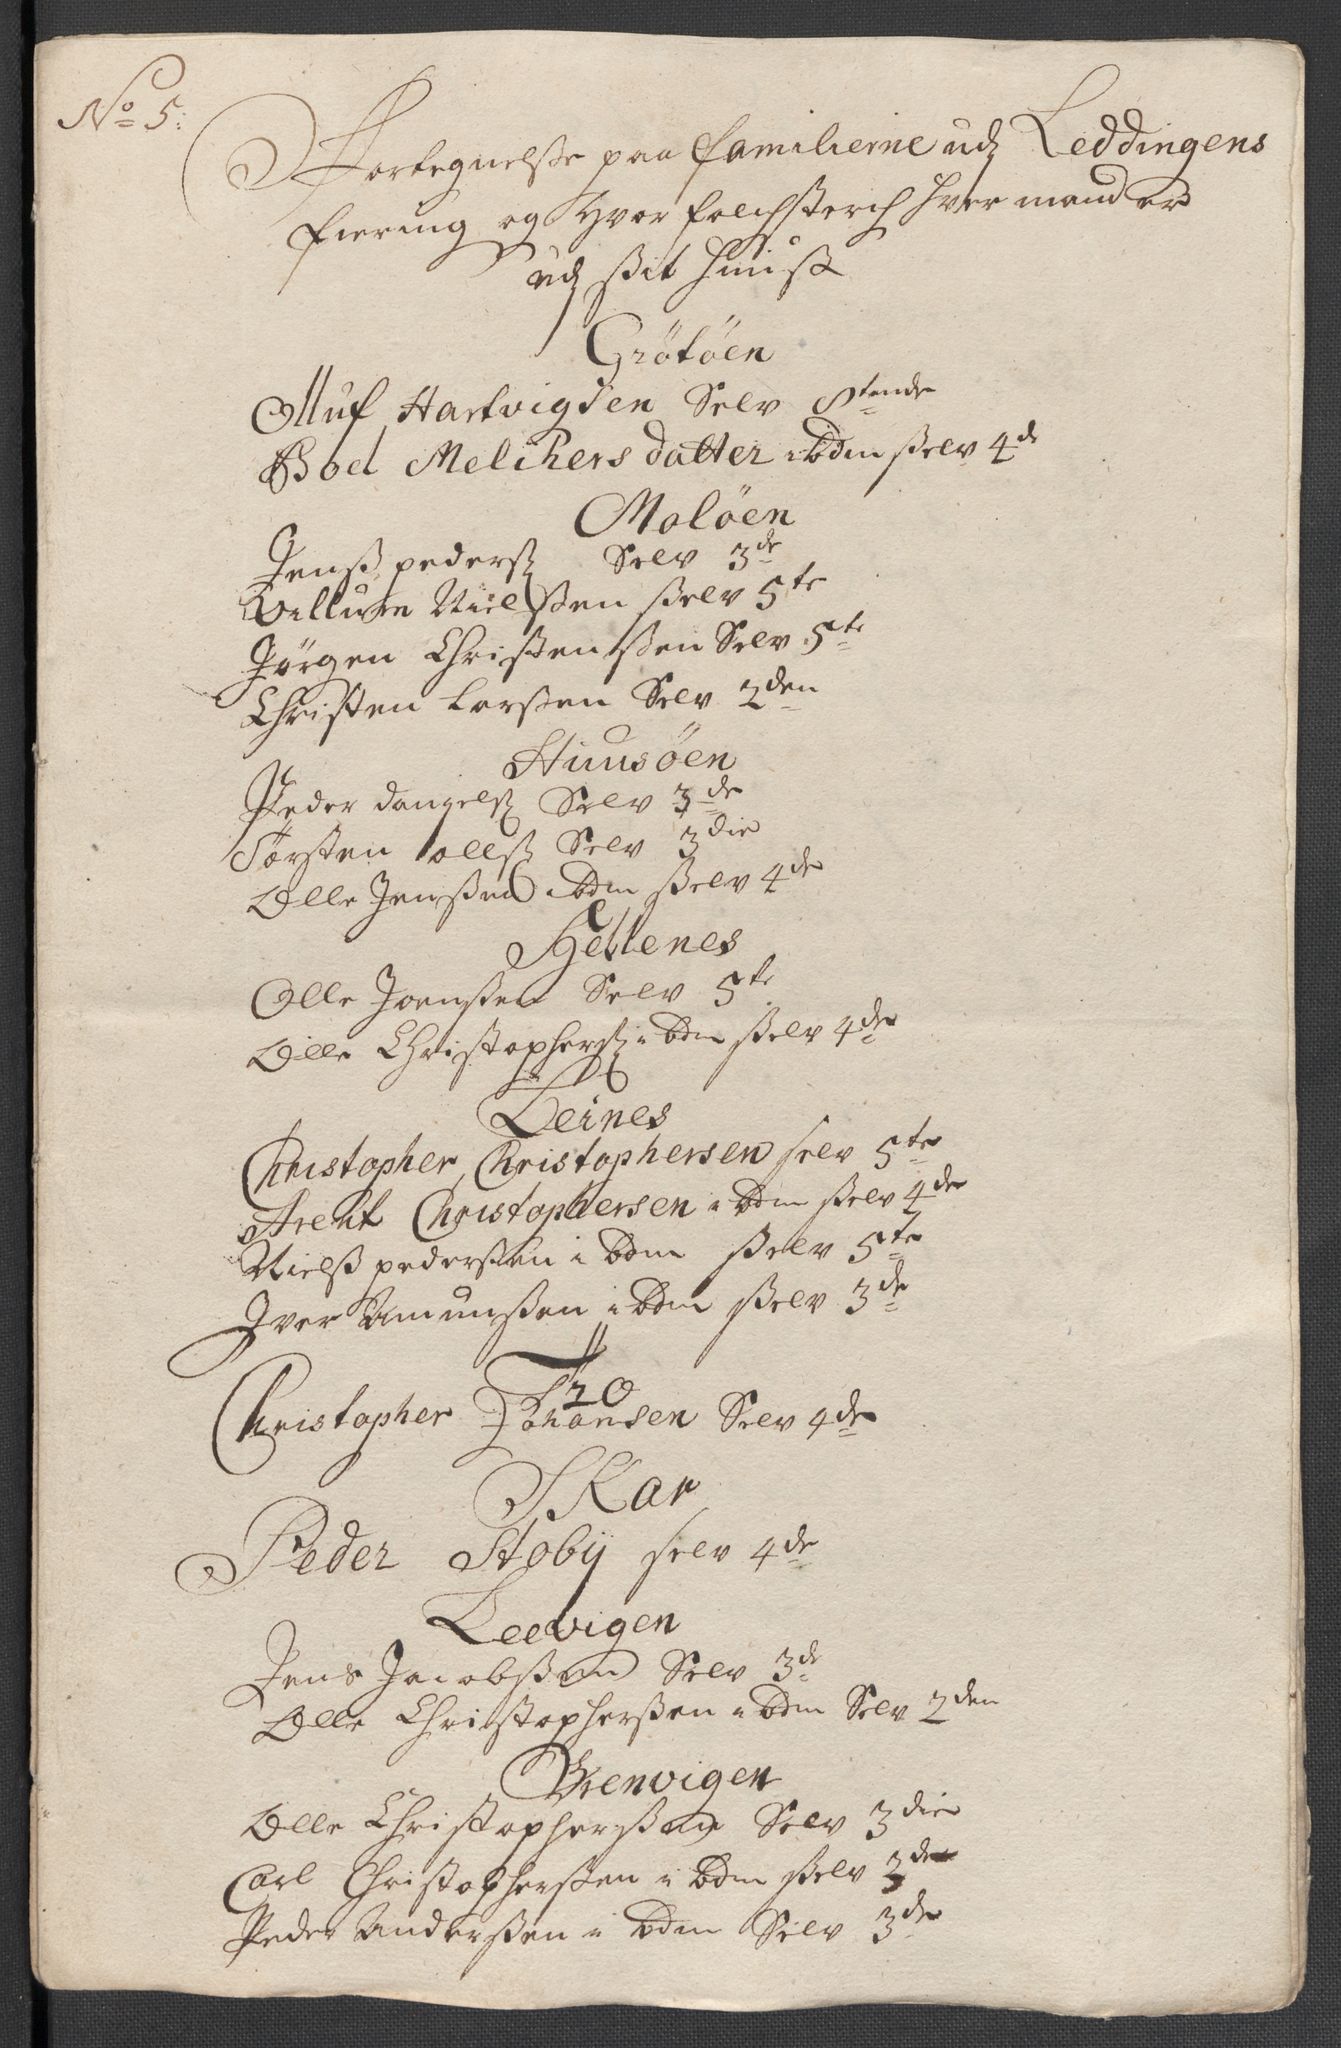 No 5:
Fortegnelsse paa familierne udj Leddingens
fiering og hvor folchsterch hver mand er
udj ssit huuss
Grötöen
Olluf Hartvigsen Selv 8tende
Boel Melchers datter ibdm sselv 4de
Molöen
Jenss pederss Selv 3de
Villum Nielssen sselv 5te
Jörgen Christenssen Selv 5te
Christen Larssen Selv 2den
Huusöen
Peder danielss Selv 3de
Torsten olless Selv 3die
Olle Jenssen ibdm sselv 4de
Hellenes
Olle Joenssen Selv 5te
Olle Christopherss ibdm sselv 4de
Leines
Christopher Christophersen selv 5te
Arent Christophersen ibdm sselv 4de
Nielss pederssen i bdm sselv 5te
Iver Amunssen ibdm sselv 3de
Christopher Johansen Selv 4de
Skar
Peder Stoby selv 4de
Leevigen
Jens Jacobssen Selv 3de
Olle Christopherssen ibdm Selv 2den
Grenvigen
Olle Christopherssen Selv 3die
Carl Christopherssen i bdm sselv 3de
Peder Anderssen i bdm Selv 3de